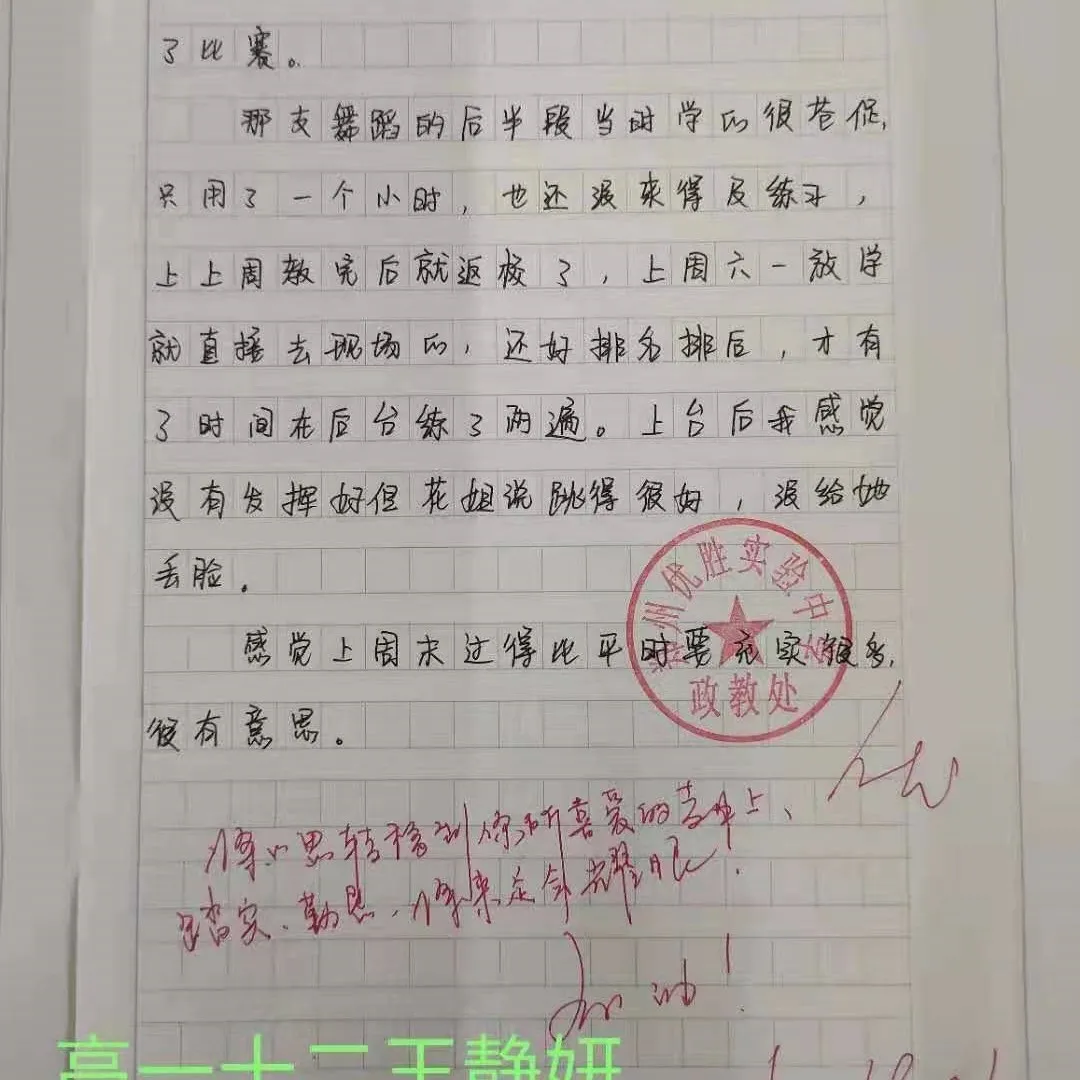 了比赛。
那支舞蹈的后半段当时学的很苍促,
只用了一个小时,也还没来得及练习,
上上周教完后就返校了,上周六一放学
就直接去现场的,还好排名排后,才有
了时间在后台练了两遍。上台后我感觉
没有发挥好但花姐说跳得很好,没给她
丢脸。
州优胜实验中
感觉上周末过得比平时要充实很多,
政教处
很有意思。
优
将心思转移到你所喜爱的专业上、
踏实、勤思、将来定会耀眼!
加油!
高一十二王静妍